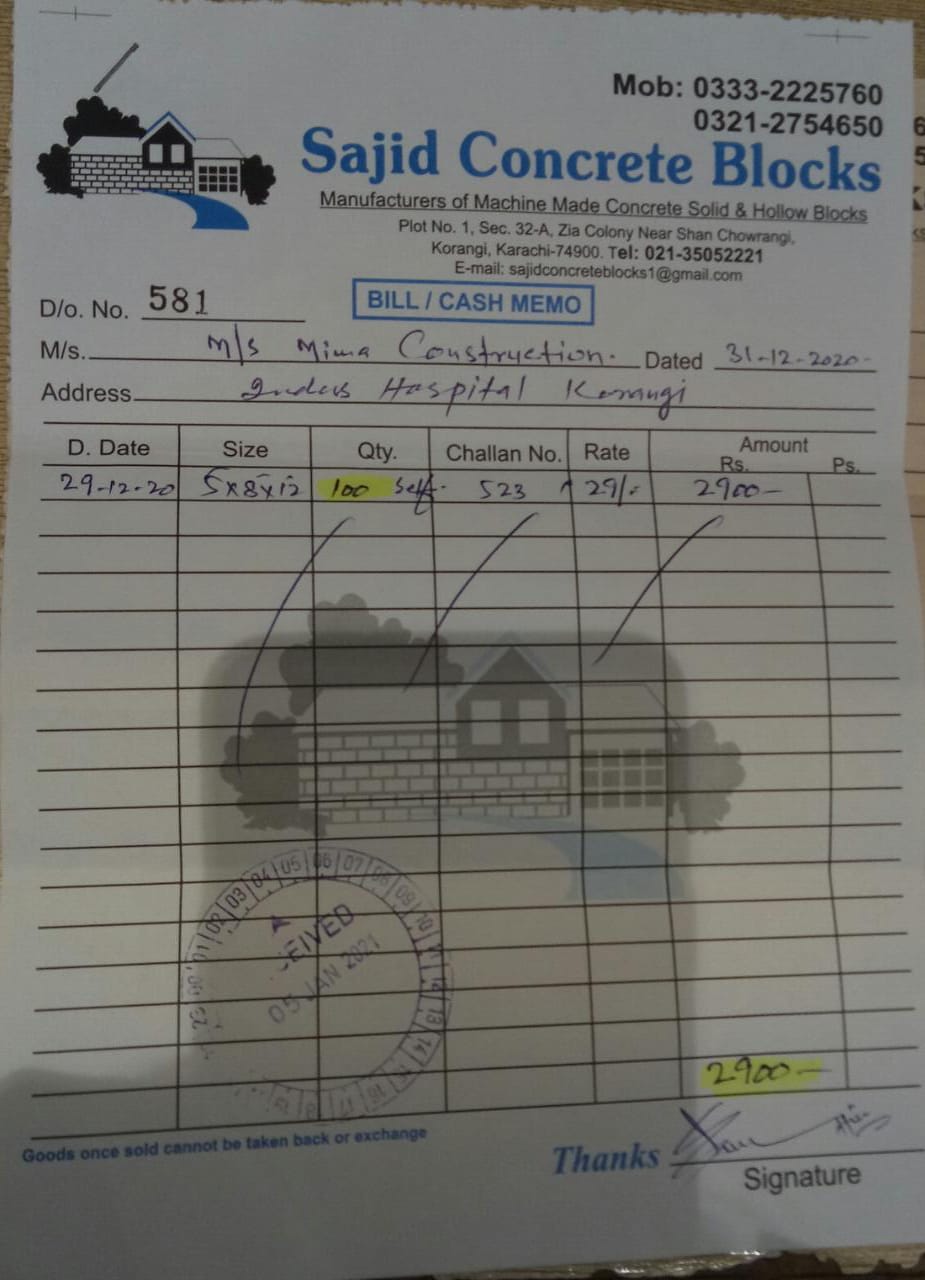 Mob: 0333-2225760
0321-2754650
Sajid Concrete Blocks
Manufacturers of Machine Made Concrete Solid & Hollow Blocks
Plot No. 1, Sec. 32-A, Zia Colony Near Shan Chowrangi,
Korangi, Karachi-74900. Tel: 021-35052221
E-mail: sajidconcreteblocks1@gmail.com
D/o. No. 581
BILL / CASH MEMO
M/s. M/s Mima Construction. Dated 31-12-2020-
Address Indus Hospital Korangi
D. Date Size Qty. Challan No. Rate Amount
Rs. Ps.
29-12-20 5x8x12 100 Self. 523 29/- 2900-
02 03 04 05 06 07 08 09 10 11 12 13 14
EIVED
05 JAN 2021
2900-
Goods once sold cannot be taken back or exchange
Thanks
Signature